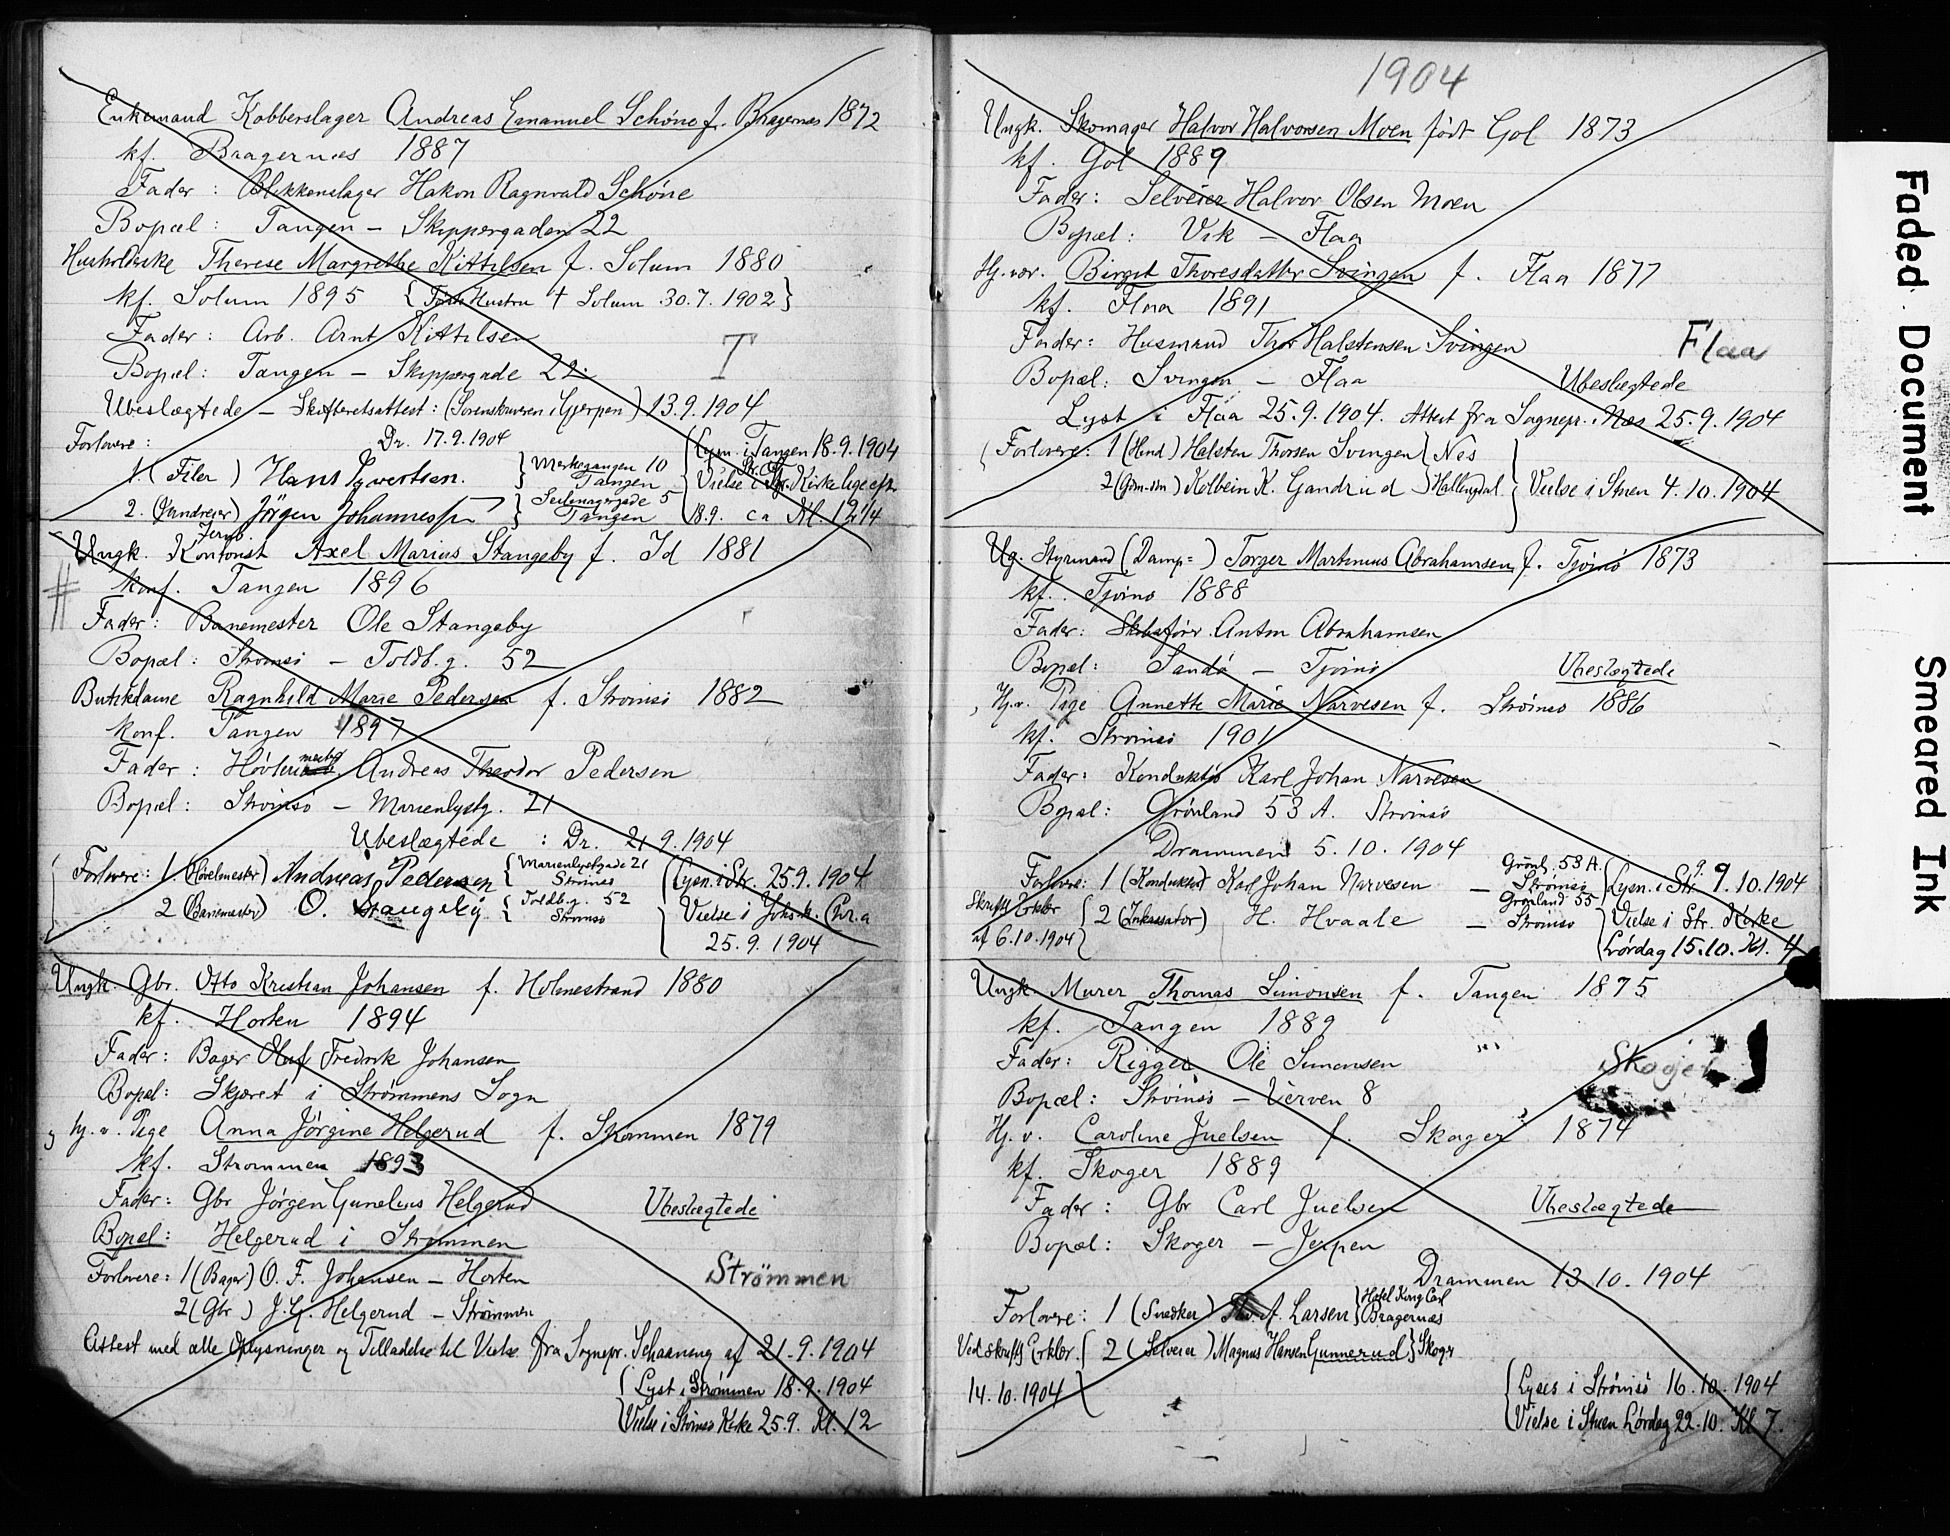 Enkemand Kobberslager Andreas Emanuel Schöne f. Bragernæs 1872
kf. Bragernæs 1887
Fader: Blikkenslager Hakon Ragnvald Schöne
Bopæl: Tangen – Skippergaden 22
Therese Margrethe Kittilsen f. Solum 1880
kf. Solum 1895 { Hustru † Solum 30.7.1902 }
Fader: Arb. Arnt Kittilsen
T
Bopæl: Tangen – Skippergade 22
Ubeslægtede – Skifteretsattest: (Sorenskriveren i Gjerpen) 13.9.1904
Forlovere: Dr. 17.9.1904
1. (Filer) Hans Syvertsen. } Merkegangen 10 Tangen
{ Lysn. i Tangen 18.9.1904
2. Jörgen Johannessen } Seilmagergade 5 Tangen
Vielse i Kirke
18.9. ca Kl. 12¼
Ungk. Jernb. Kontorist Axel Marius Stangeby f. Id 1881
#
konf. Tangen 1896
Fader: Banemester Ole Stangeby
Bopæl: Strömsö – Toldb.g. 52
Butikdame Ragnhild Marie Pedersen f. Strömsö 1882
konf. Tangen 1897
Fader: Andreas Theodor Pedersen
Bopæl: Strömsö – Marienlystg. 21
Ubeslægtede : Dr. 21.9.1904
Forlovere: 1. (Hövelmester) Andreas Pedersen { Marienlystgade 21 Strömsö
{ Lysn. i Str. 25.9.1904
2 (Banemester) O. Stangeby. { Toldb.g. 52 Strömsö
Vielse i
25.9.1904
Ungk. Gbr. Otto Kristian Johansen f. Holmestrand 1880
kf. Horten 1894
Fader: Bager Oluf Fredrik Johansen
Bopæl: Skjæret i Strømmens Sogn
og hj.v. Pige Anna Jörgine Helgerud f. Strømmen 1879
kf. Strømmen 1893
Fader: Gbr Jörgen Gunelius Helgerud
Ubeslægtede
Bopæl: Helgerud i Strømmen
Forlovere: 1 (Bager) O. F. Johansen – Horten
Strømmen
2 (Gbr) J. G. Helgerud – Strømmen
Attest med alle Oplysninger og Tilladelse til Vielse fra Sognepr. Schaanning af 21.9.1904
{ Lyst i Strømmen 18.9.1904
Vielse i Strömsö Kirke 25.9. Kl. 12
1904
Ungk. Skomager Halvor Halvorsen Moen født Gol 1873
kf. Gol 1889
Fader: Selveier Halvor Olsen Moen
Bopæl: Vik – Flaa
Hj.vær. Birgit Thoresdatter Svingen f. Flaa 1877
kf. Flaa 1891
Fader: Husmand Thor Halstensen Svingen
Flaa
Bopæl: Svingen – Flaa
Ubeslægtede
Lyst i Flaa 25.9.1904. Attest fra Sognepr. i Næs 25.9.1904
Forlovere: 1 Halsten Thorsen Svingen } Nes
2 Kolbein K. Gandrud } Hallingdal } Vielse i Stuen 4.10.1904
Ug. Styrmand (Damp=) Torger Martinius Abrahamsen f. Tjömö 1873
kf. Tjömö 1888
Fader: Skibsfører Anton Abrahamsen
Bopæl: Sandö – Tjömö
Ubeslægtede
Hj.v. Pige Annette Marie Narvesen f. Strömsö 1886
kf. Strömsö 1901
Fader: Konduktör Karl Johan Narvesen
Bopæl: Grönland 53 A. Strömsö
Drammen 5.10.1904
Forlovere: 1 (Konduktør) Karl Johan Narvesen – Grönl. 53 A. Strömsö
{ Lysn. i Str. 9.10.1904
Skriftl Erklær. af 6.10.1904 { 2 (Inkassator) H. Hvaale – Grønland 55 Strömsö
Vielse i Str. Kirke
Lördag 15.10. Kl. 4
Ungk. Murer Thomas Simonsen f. Tangen 1875
kf. Tangen 1889
Fader: Rigger Ole Simonsen
Skoger
Bopæl: Strömsö – Verven 8
Hj.v. Caroline Juelsen f. Skoger 1874
kf. Skoger 1889
Fader: Gbr Carl Juelsen
Ubeslægtede
Bopæl: Skoger – Jerpen
Drammen 13.10.1904
Forlovere: 1 (Snedker) Larsen } Hotel Kong Carl Bragernæs
Ved skriftl Erklær. { 2 (Selveier) Magnus Hansen Gunnerud } Skoger
14.10.1904
{ Lyses i Strömsö 16.10.1904
Vielse i Stuen Lördag 22.10. Kl 7.
Faded Document
Smeared Ink